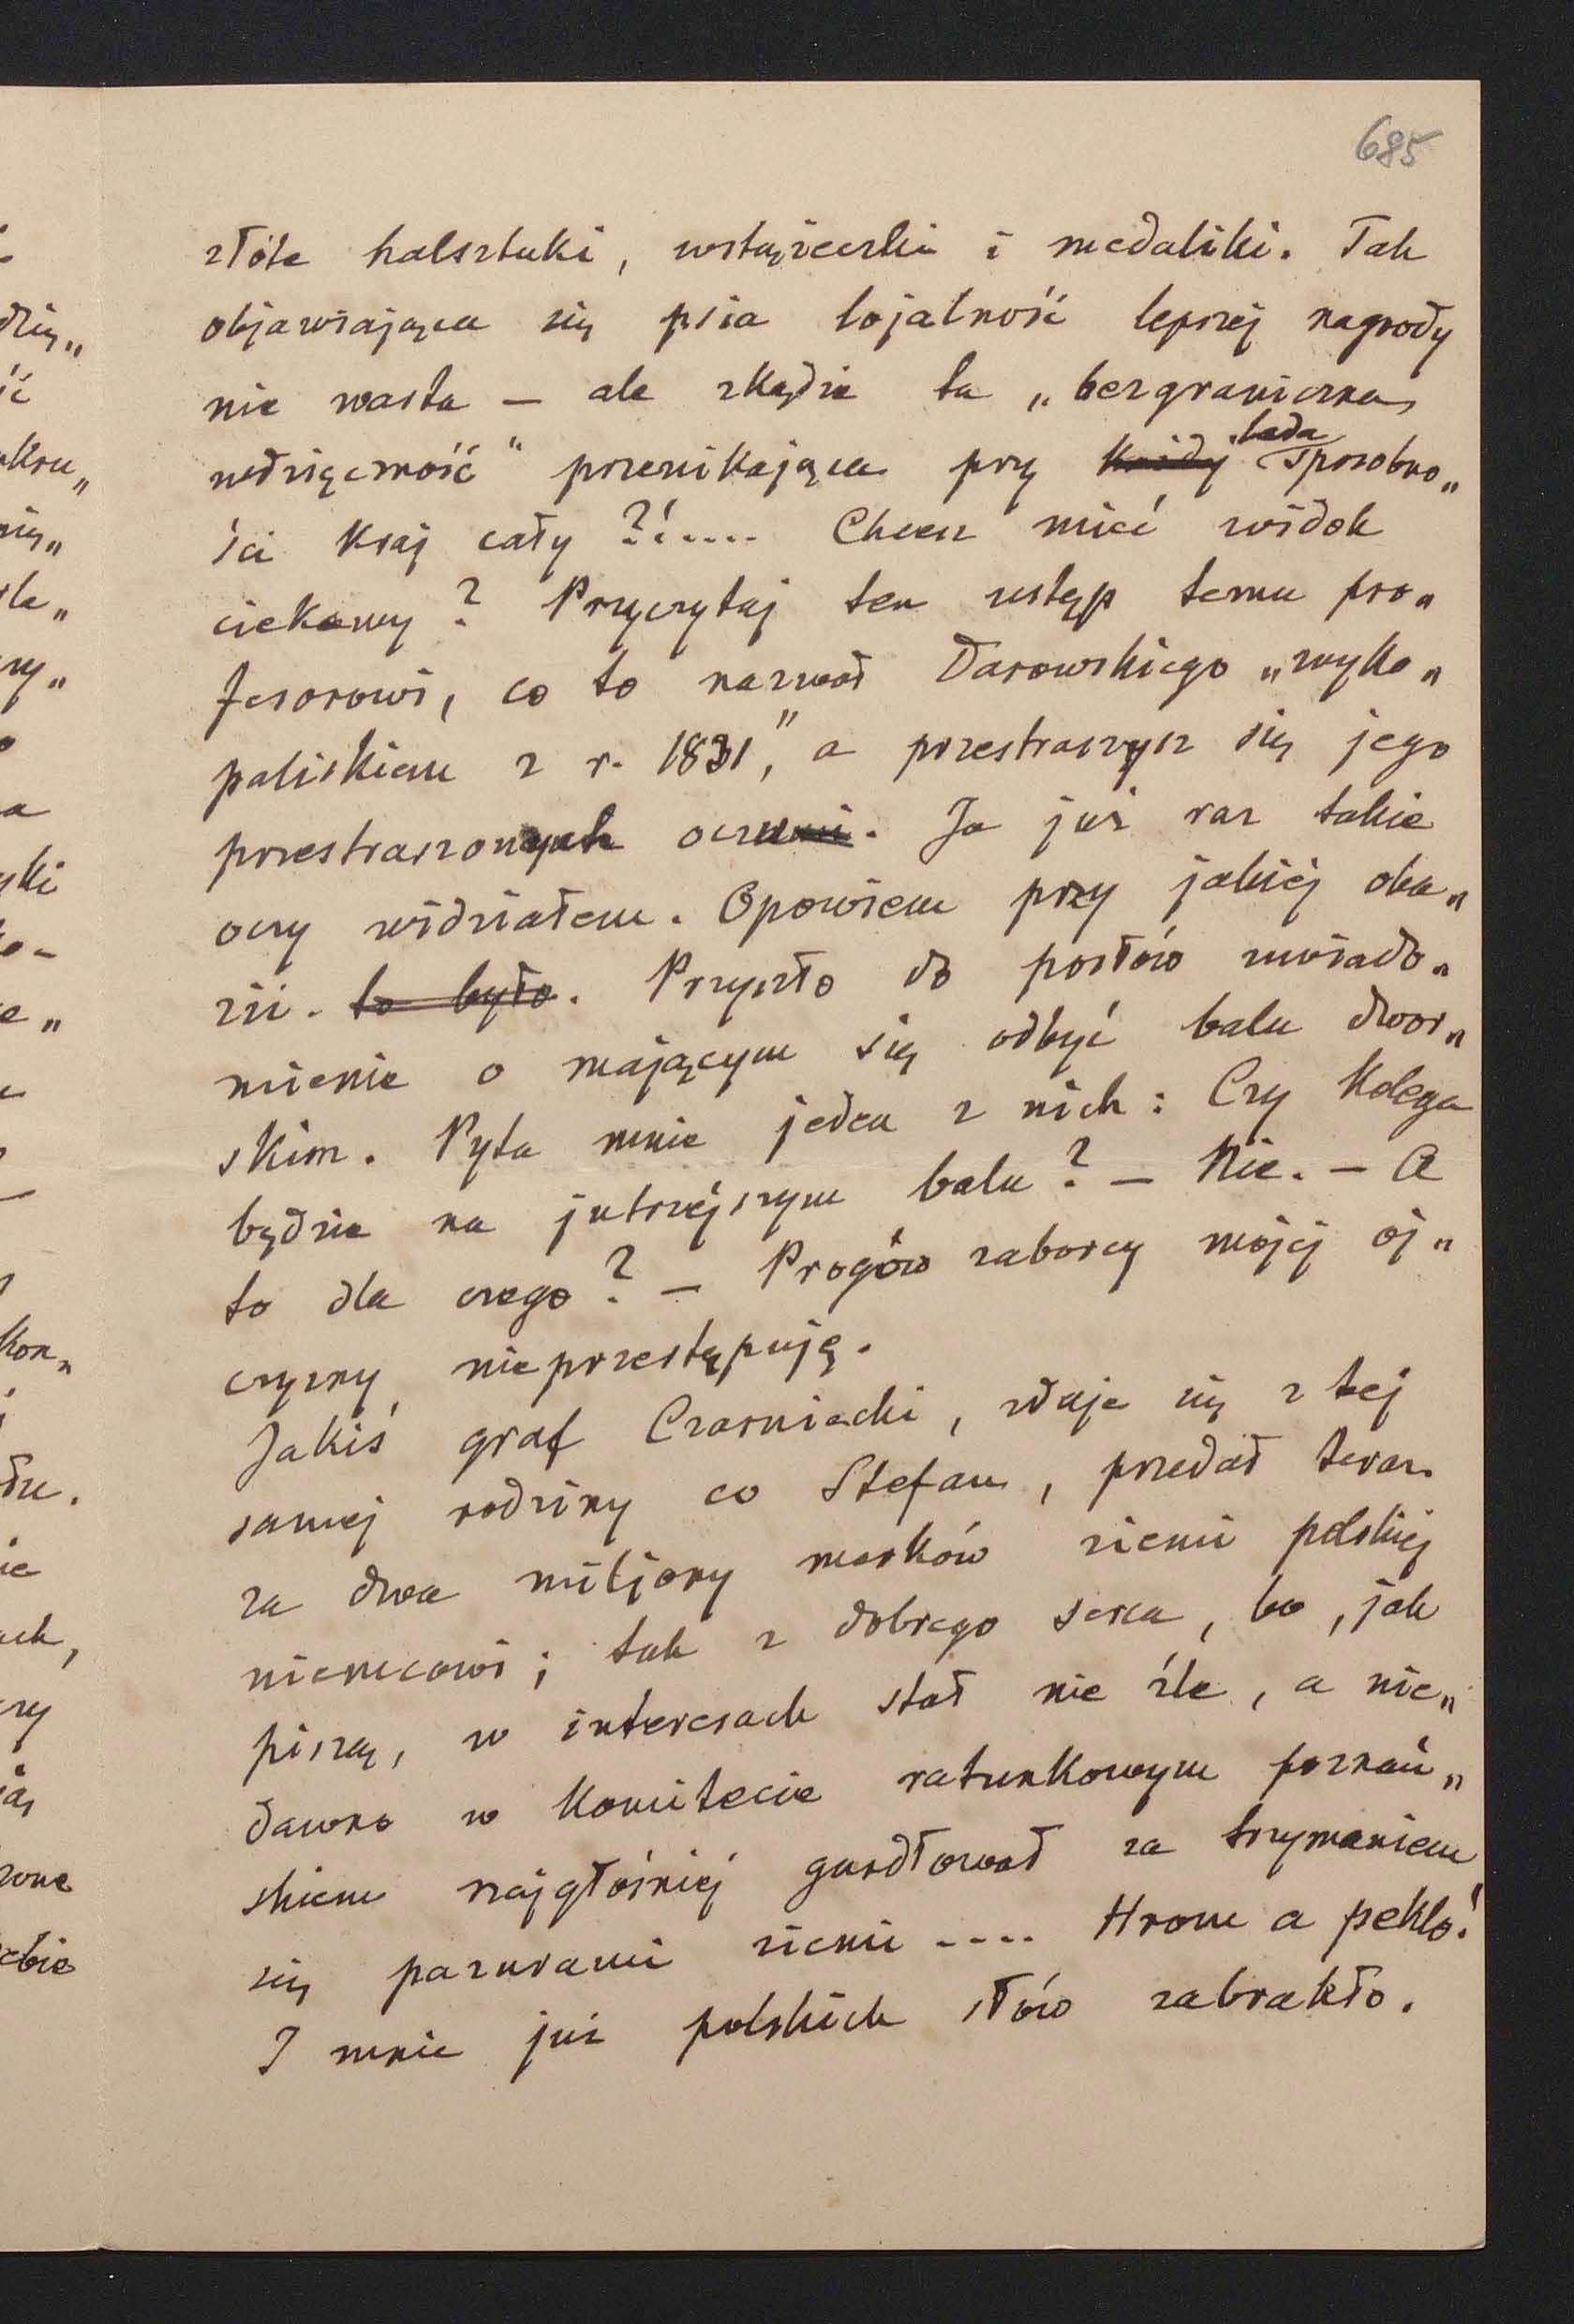 685
złote halsztuki, wstążeczki i medaliki. Tak
objawiająca się psia lojalność lepszej nagrody
nie warta — ale zkądże ta „bezgraniczna
wdzięczność" przenikająca przy każdej lada sposobno„
ści kraj cały ?!.... Chcesz mieć widok
ciekawy? Przyczytaj ten ustęp temu pro„
fesorowi, co to nazwał Darowskiego „wyko„
paliskiem z r. 1831," a przestraszysz się jego
przestraszonych oczu. Ja już raz takie
oczy widziałem. Opowiem przy jakiéj oka„
zii. to było. Przyszło do posłów uwiado„
mienie o mającym się odbyć balu dwor„
skim. Pyta mnie jeden z nich: Czy Kolega
będzie na jutrzéjszym balu? — Nie. — A
to dla czego? — Progów zaborcy mojéj oj„
czyzny nieprzestępuję.
Jakiś graf Czarniecki, zdaje się z tej
samej rodziny co Stefan, przedał teraz
za dwa miljony marków ziemi polskiéj
niemcowi; tak z dobrego serca, bo, jak
piszą, w interesach stał nie źle, a nie„
dawno w Komitecie ratunkowym poznań„
skiem najgłośniéj gardłował za trzymaniem
się pazurami ziemi .... Hrom a peklo!
I mnie już polskich słów zabrakło.